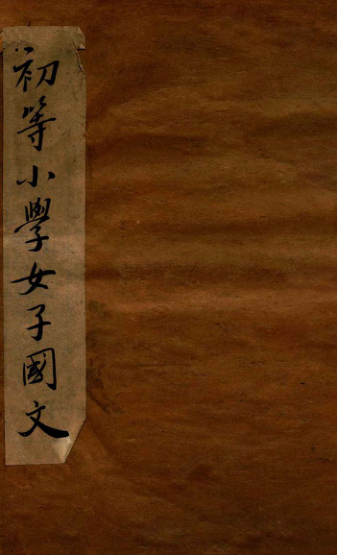 初等小學女子國文